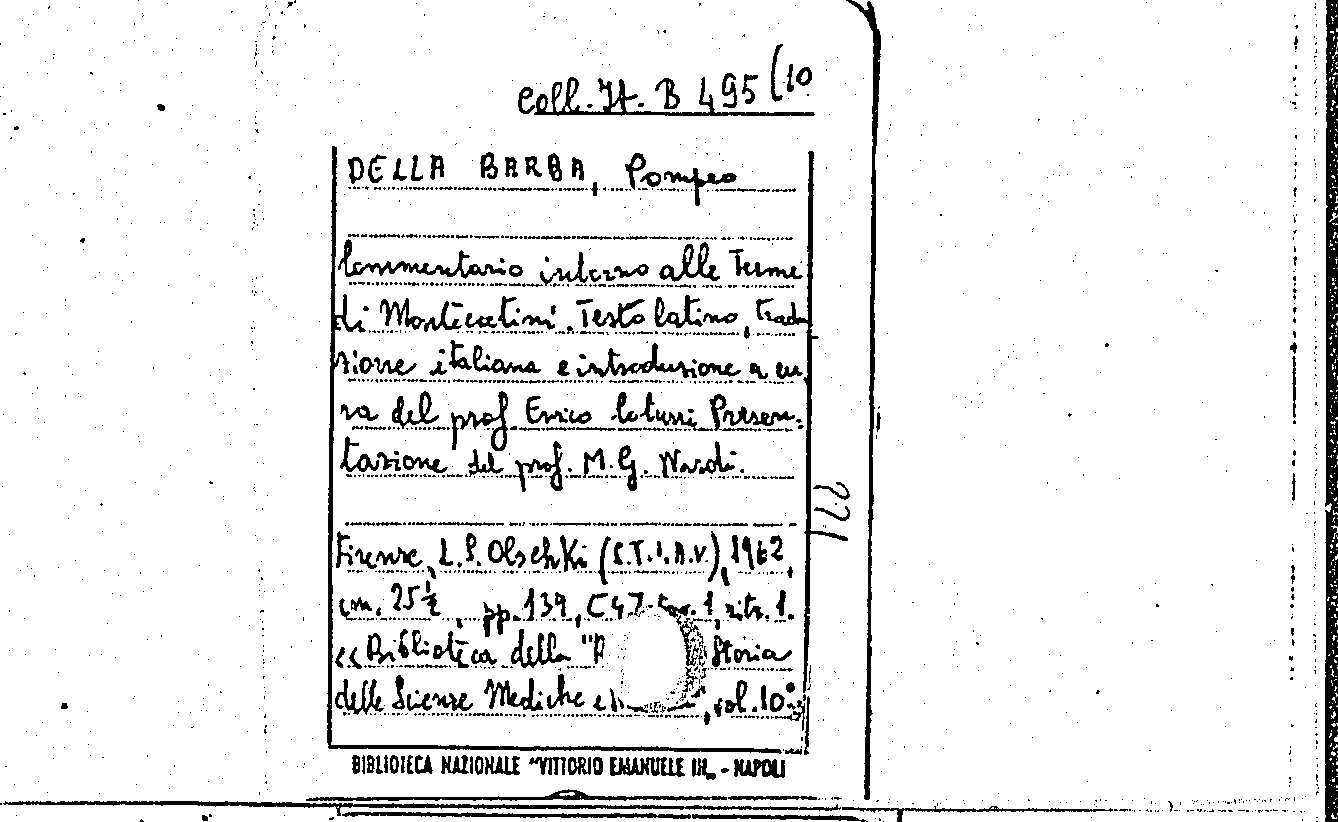 Coll. It. B 495 (10
DELLA BARBA, Pompeo
Commentario intorno alle Terme
di Montecatini. Testo latino, tradu
zione italiana e introduzione a cu,
ra del prof Enrico Coturri Presen-
tazione del prof. M. G. Nardi.
Firenze, L. S. Olschki (S.T.I.A.V.), 1962,
cm. 25½, pp. 139, 1, ritr. 1.
<<Biblioteca della "R Storia
delle Scienze Mediche e , vol. 10°
221
BIBLIOTECA NAZIONALE "VITTORIO EMANUELE III„ - NAPOLI